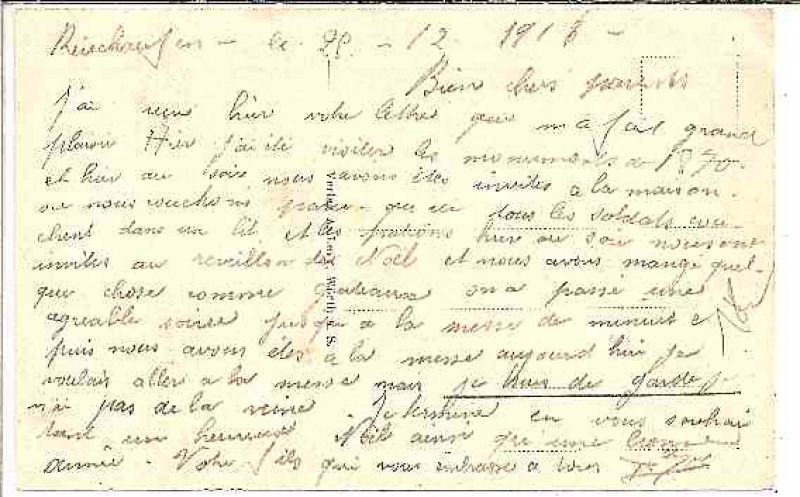 Reischoffen - le 25 - 12. 1918 -
Bien chers parents
J'ai reçu hier votre lettre qui m'a fait grand
plaisir Hier j'ai été visiter les monuments de 1870
et hier au soir nous avons étés invités à la maison
ou nous couchons parce que ici tous les soldats cou-
chent dans un lit et les patrons hier au soir nous ont
invités au reveillon de Noël et nous avons mangé quel-
que chose comme gateaux on a passé une
agreable soirée jusqu'a la messe de minuit e
puis nous avons étés a la messe aujourd'hui je
voulais aller a la messe mais je suis de garde je
n'ai pas de la veine. Je termine en vous souhai
tant un heureux Noël ainsi qu'une bonne
année. Votre fils qui vous embrasse a tous
Verlag A. Jury, Wörth a. S.